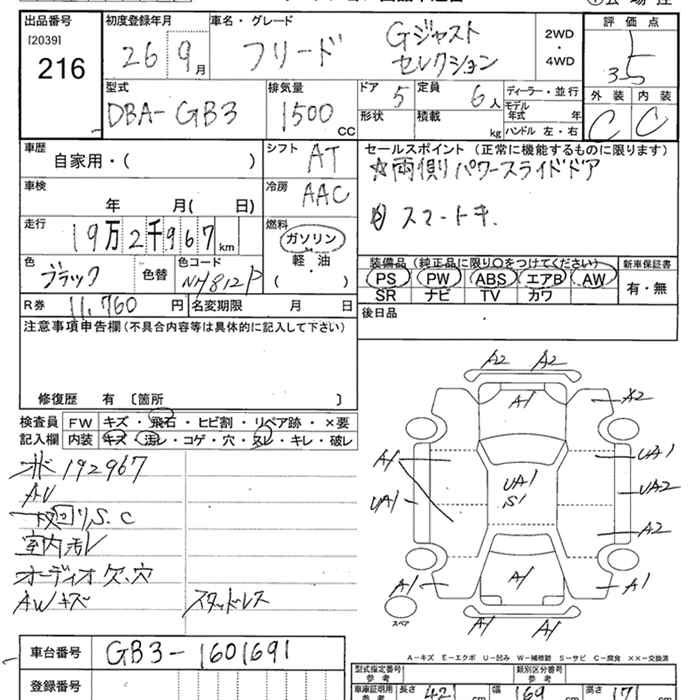 出品番号
[2039]
216
初度登録年月
26 9月
車名・グレード
フリード
Gジャスト
セレクション
2WD
・
4WD
評価点
3.5
型式
DBA-GB3
排気量
1500
CC
ドア
5
定員
6人
形状
積載
kg
ディーラー・並行
モデル
年式 年
ハンドル 左・右
外装 内装
C C
車歴
自家用・( )
シフト
AT
車検
年 月( 日)
冷房
AAC
走行
19万2千967km
燃料
ガソリン
・
軽・油
( )
色
ブラック
色替
色コード
NH812P
R券 11,760円
名変期限 月 日
セールスポイント (正常に機能するものに限ります)
☆両側パワースライドドア
スマートキ.
装備品 (純正品に限り○をつけてください)
PS PW ABS エアB AW
SR ナビ TV カワ
新車保証書
有・無
後日品
注意事項申告欄 (不具合内容等は具体的に記入して下さい)
修復歴 有 〔箇所 〕
検査員 FW キズ・飛石・ヒビ割・リペア跡・×要
記入欄 内装 キズ・汚レ・コゲ・穴・スレ・キレ・破レ
192967
AV
S.C
室内汚レ
オーディオ欠.穴
AWキズ
スタッドレス
A2 A2
A1 A2
A1 UA1
UA1 UA1 UA2
S1
A2
A1 A1 A1
A1 A1
スペア
A－キズ E－エクボ U－凹み W－補修跡 S－サビ C－腐食 ××－交換済
車台番号
GB3-1601691
登録番号
型式指定番号
参考
類別区分番号
参考
車庫証明用
参考
長さ 42
cm
幅 169
cm
高さ 171
cm